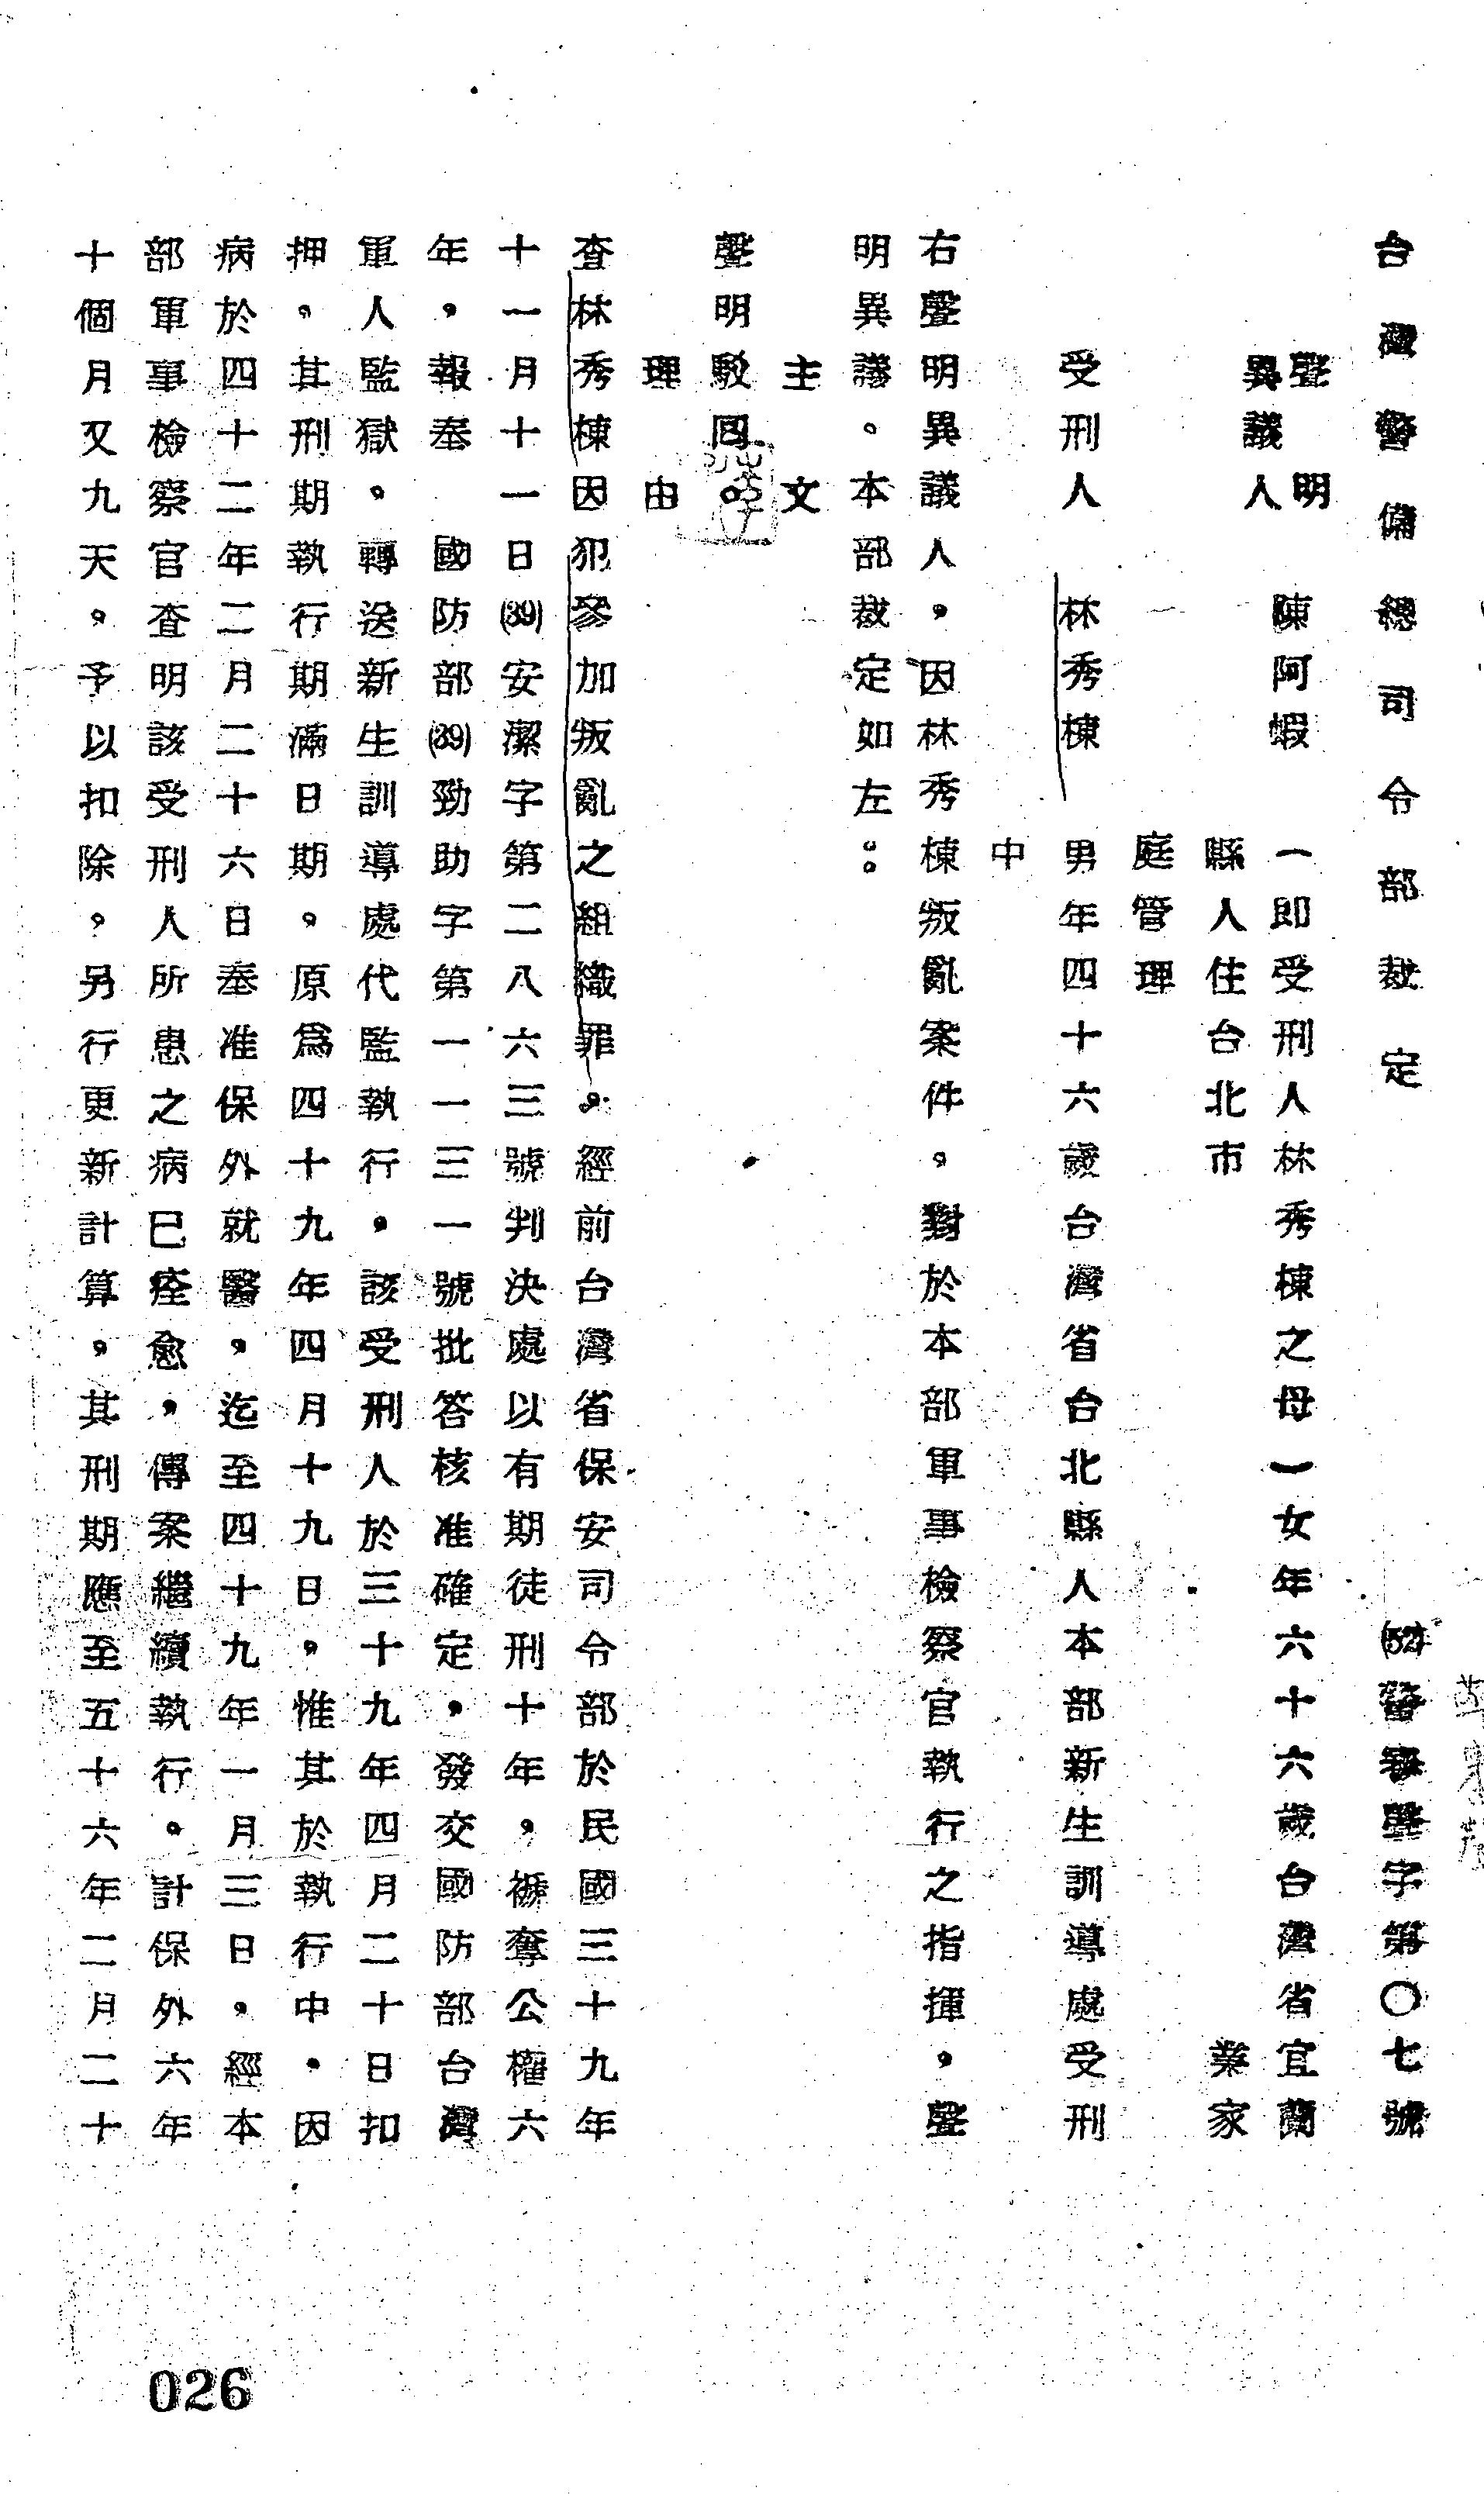 台灣警備總司令部裁定
(52)警審聲字第〇七號
聲明異議人 陳阿蝦 (即受刑人林秀棟之母)女年六十六歲台灣省宜蘭
縣人住台北市 業家
庭管理
受刑人 林秀棟 男年四十六歲台灣省台北縣人本部新生訓導處受刑
中
右聲明異議人,因林秀棟叛亂案件,對於本部軍事檢察官執行之指揮,聲
明異議。本部裁定如左:
主文
聲明駁回。
理由
查林秀棟因犯參加叛亂之組織罪,經前台灣省保安司令部於民國三十九年
十一月十一日(39)安潔字第二八六三號判決處以有期徒刑十年,褫奪公權六
年,報奉 國防部(39)勁助字第一一三一號批答核准確定,發交國防部台灣
軍人監獄。轉送新生訓導處代監執行,該受刑人於三十九年四月二十日扣
押,其刑期執行期滿日期,原爲四十九年四月十九日,惟其於執行中,因
病於四十二年二月二十六日奉准保外就醫,迄至四十九年一月三日,經本
部軍事檢察官查明該受刑人所患之病已痊愈,傳案繼續執行。計保外六年
十個月又九天,予以扣除,另行更新計算,其刑期應至五十六年二月二十
026